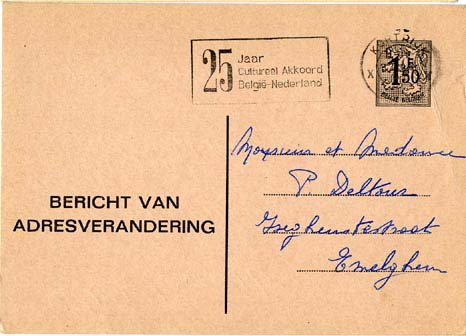 25 Jaar
Cultureel Akkoord
België-Nederland
KORTRIJK
X
1F50
BERICHT VAN
ADRESVERANDERING
Monsieur et Madame
P. Deltour
Iseghemsestraat
Emelghem